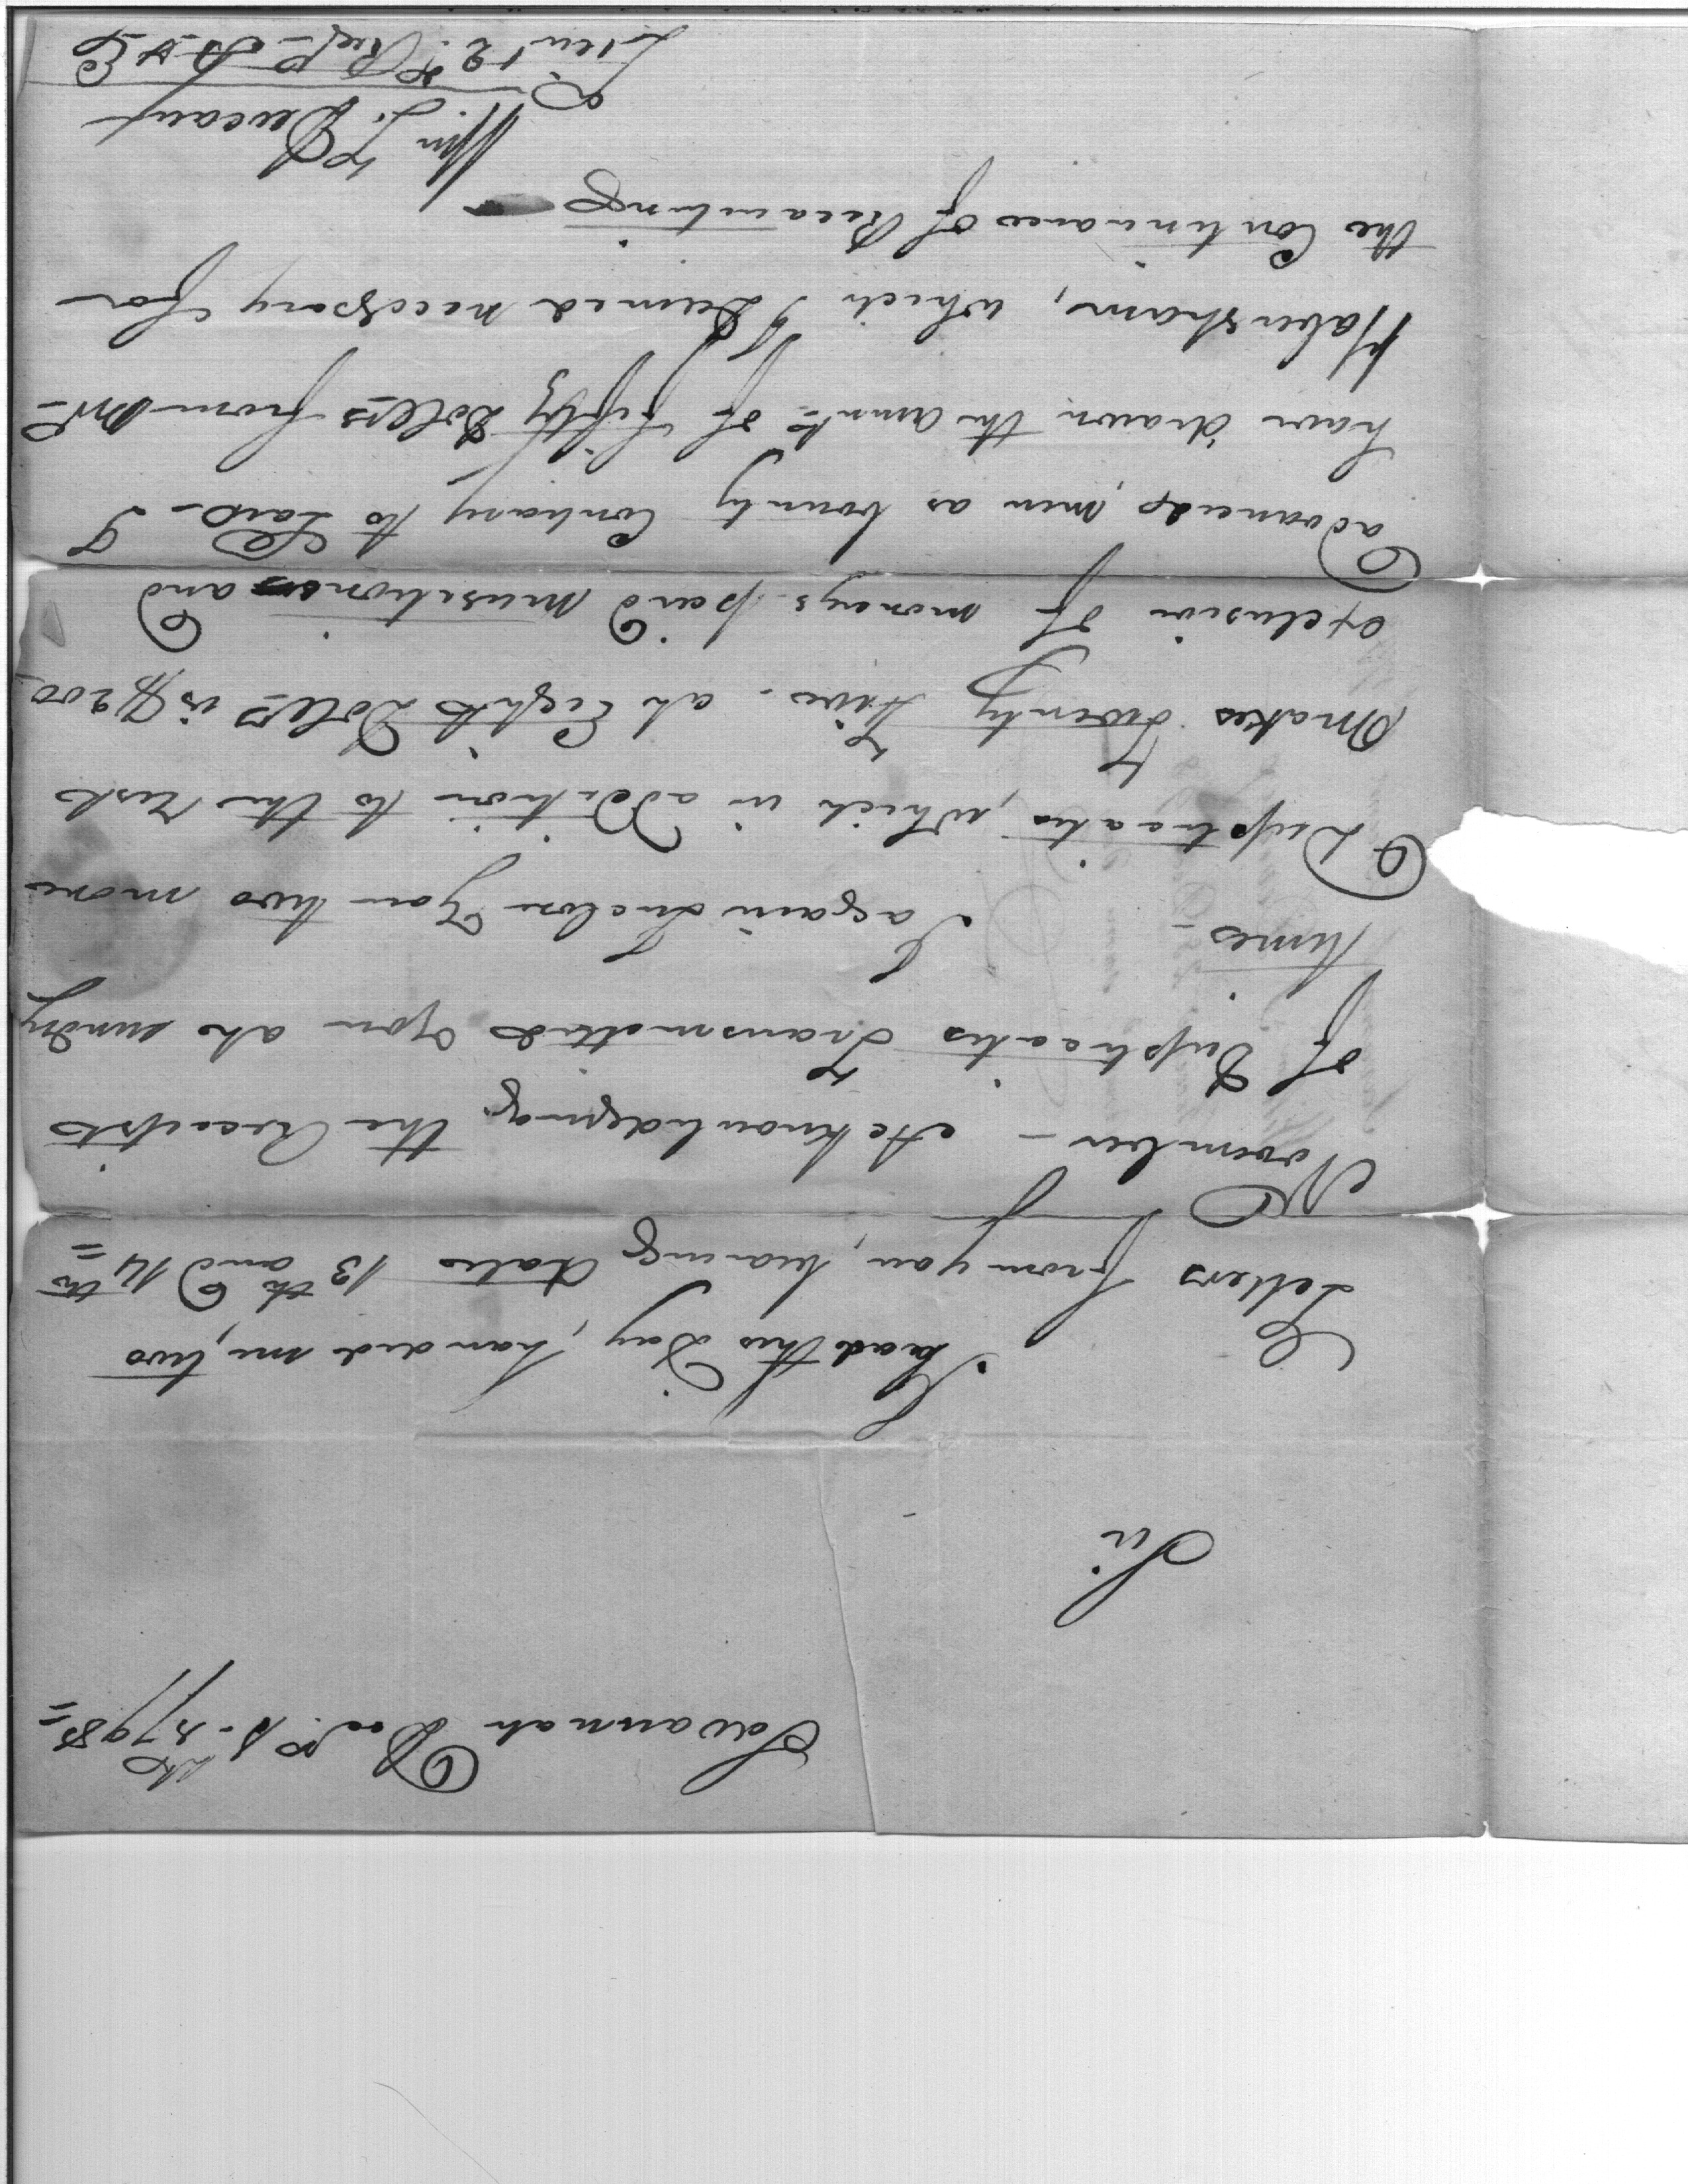 Savannah Decr. 1st 1798=
Sir
I had this Day, handed me, two
Letters from you, bearing dates 13th and 14th
November – Acknowledging the Receipts
of Duplicates Transmitted you at sundry
times –
I again Inclose You two more
Duplicates, which in addition to the rest
Makes Twenty Five. at Eight Dollers is $200
exclusive of moneys paid Musitions and
advanced men as bounty Contrary to Law – I
have drawn the Amnt of Fifty Dollers from Mr
Habersham, which I Deemed necessary for
the Continuance of Recruiting
Wm
Lieut 2d Reg